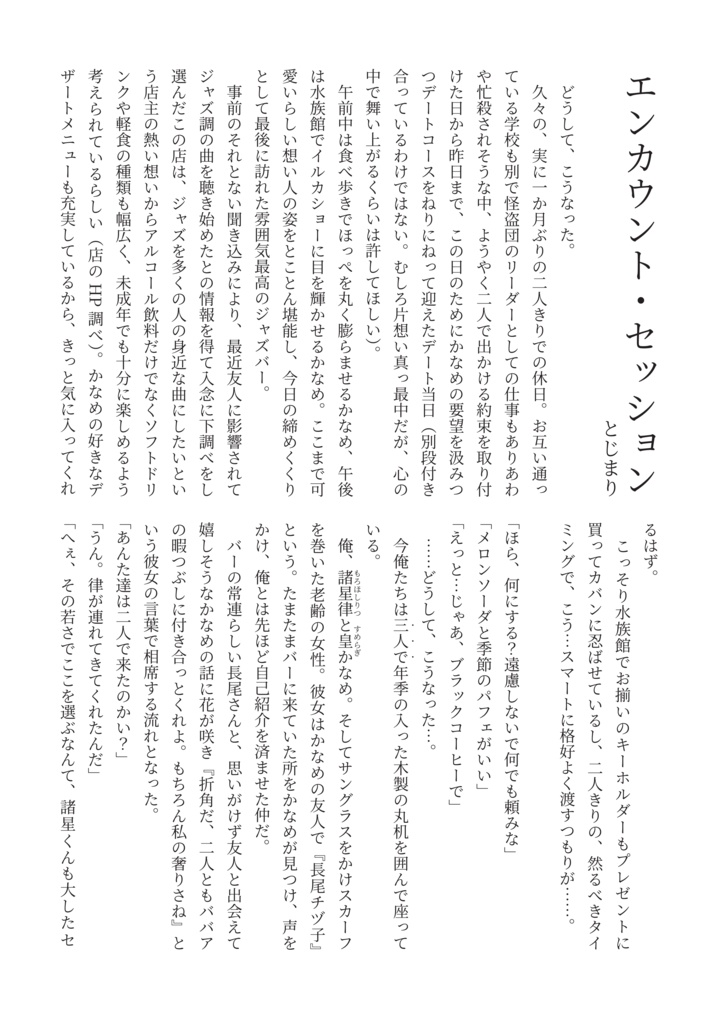 エンカウント・セッション
とじまり
どうして、こうなった。
久々の、実に一か月ぶりの二人きりでの休日。お互い通っ
ている学校も別で怪盗団のリーダーとしての仕事もありあわ
や忙殺されそうな中、ようやく二人で出かける約束を取り付
けた日から昨日まで、この日のためにかなめの要望を汲みつ
つデートコースをねりにねって迎えたデート当日（別段付き
合っているわけではない。むしろ片想い真っ最中だが、心の
中で舞い上がるくらいは許してほしい）。
午前中は食べ歩きでほっぺを丸く膨らませるかなめ、午後
は水族館でイルカショーに目を輝かせるかなめ。ここまで可
愛いらしい想い人の姿をとことん堪能し、今日の締めくくり
として最後に訪れた雰囲気最高のジャズバー。
事前のそれとない聞き込みにより、最近友人に影響されて
ジャズ調の曲を聴き始めたとの情報を得て入念に下調べをし
選んだこの店は、ジャズを多くの人の身近な曲にしたいとい
う店主の熱い想いからアルコール飲料だけでなくソフトドリ
ンクや軽食の種類も幅広く、未成年でも十分に楽しめるよう
考えられているらしい（店のHP調べ）。かなめの好きなデ
ザートメニューも充実しているから、きっと気に入ってくれ
るはず。
こっそり水族館でお揃いのキーホルダーもプレゼントに
買ってカバンに忍ばせているし、二人きりの、然るべきタイ
ミングで、こう…スマートに格好よく渡すつもりが……。
「ほら、何にする？遠慮しないで何でも頼みな」
「メロンソーダと季節のパフェがいい」
「えっと…じゃあ、ブラックコーヒーで」
……どうして、こうなった…。
今俺たちは三人で年季の入った木製の丸机を囲んで座って
いる。
俺、諸星律もろほしりつと皇すめらぎかなめ。そしてサングラスをかけスカーフ
を巻いた老齢の女性。彼女はかなめの友人で『長尾チヅ子』
という。たまたまバーに来ていた所をかなめが見つけ、声を
かけ、俺とは先ほど自己紹介を済ませた仲だ。
バーの常連らしい長尾さんと、思いがけず友人と出会えて
嬉しそうなかなめの話に花が咲き『折角だ、二人ともババア
の暇つぶしに付き合っとくれよ。もちろん私の奢りさね』と
いう彼女の言葉で相席する流れとなった。
「あんた達は二人で来たのかい？」
「うん。律が連れてきてくれたんだ」
「へぇ、その若さでここを選ぶなんて、諸星くんも大したセ